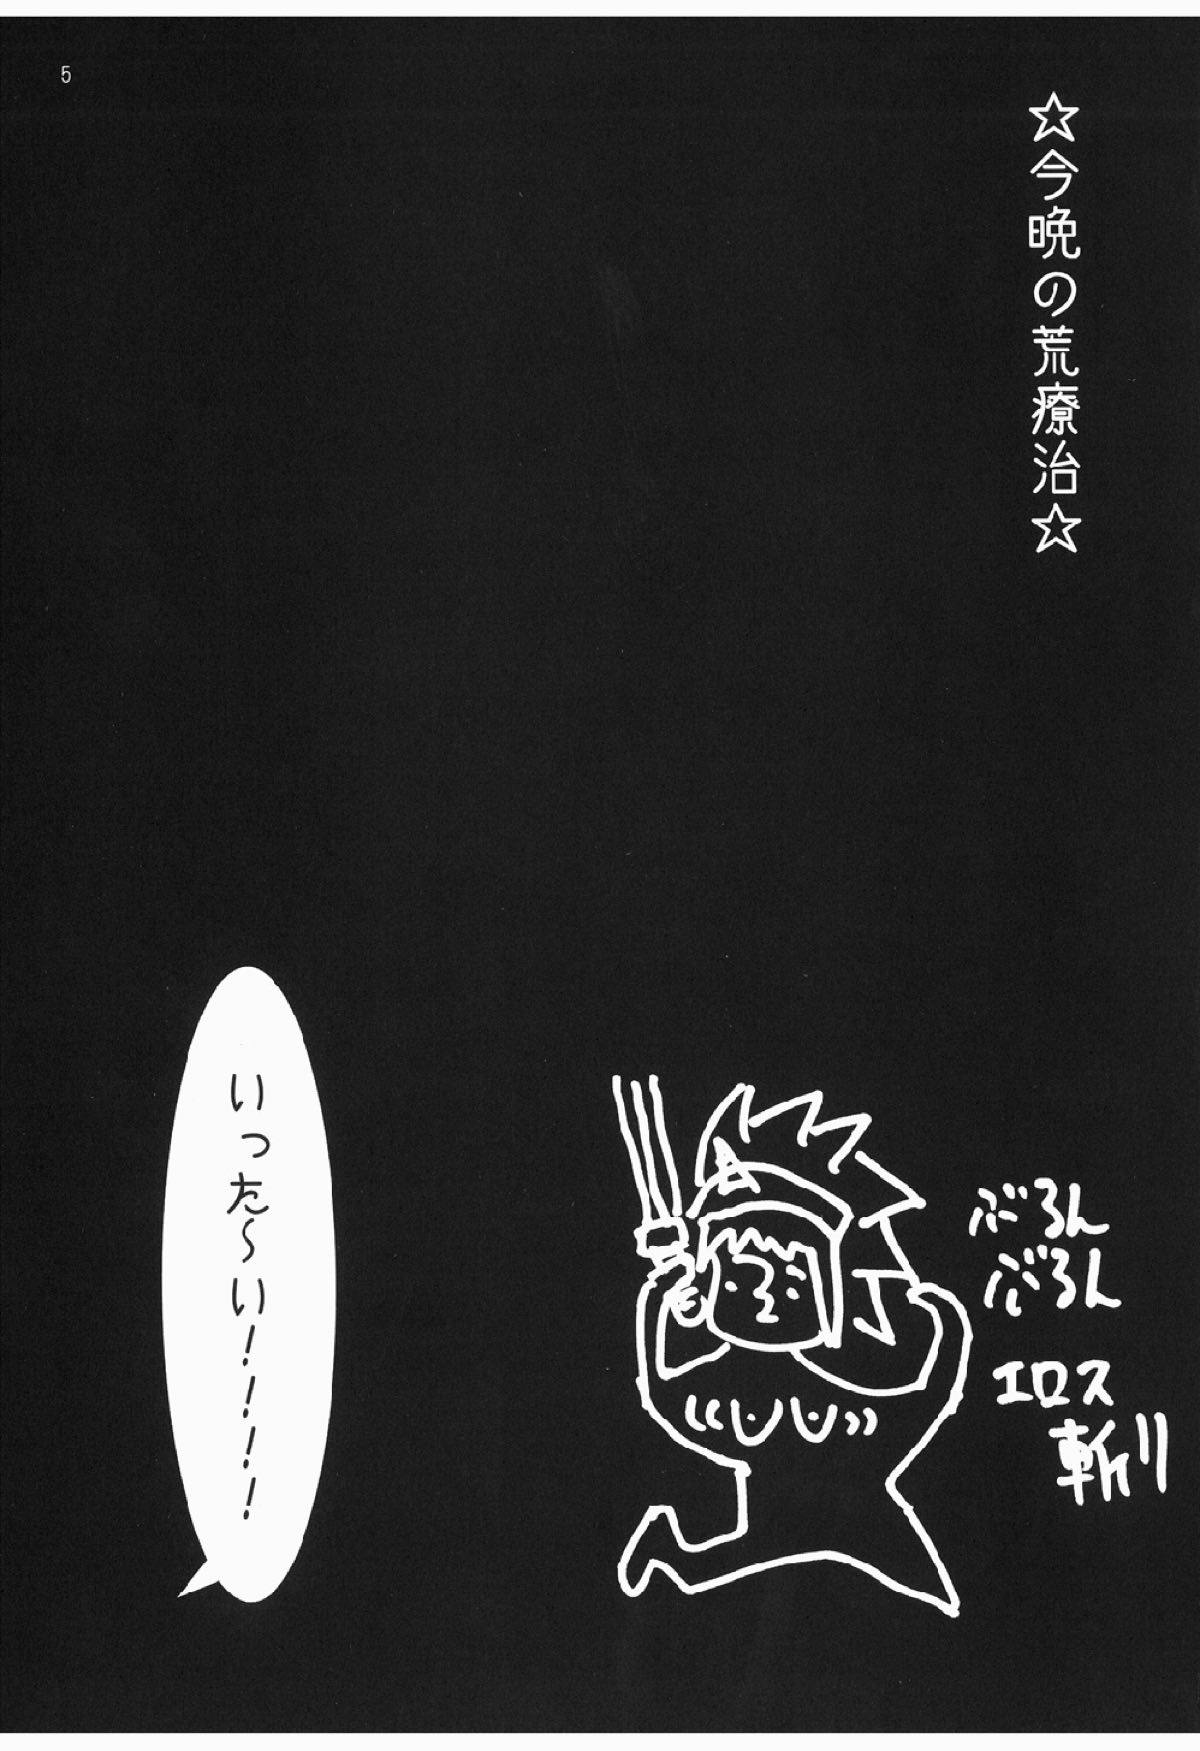 ☆今晩の荒療治☆
ぶるん
ぶるん
エロス
斬り
いった～い！！！！
5